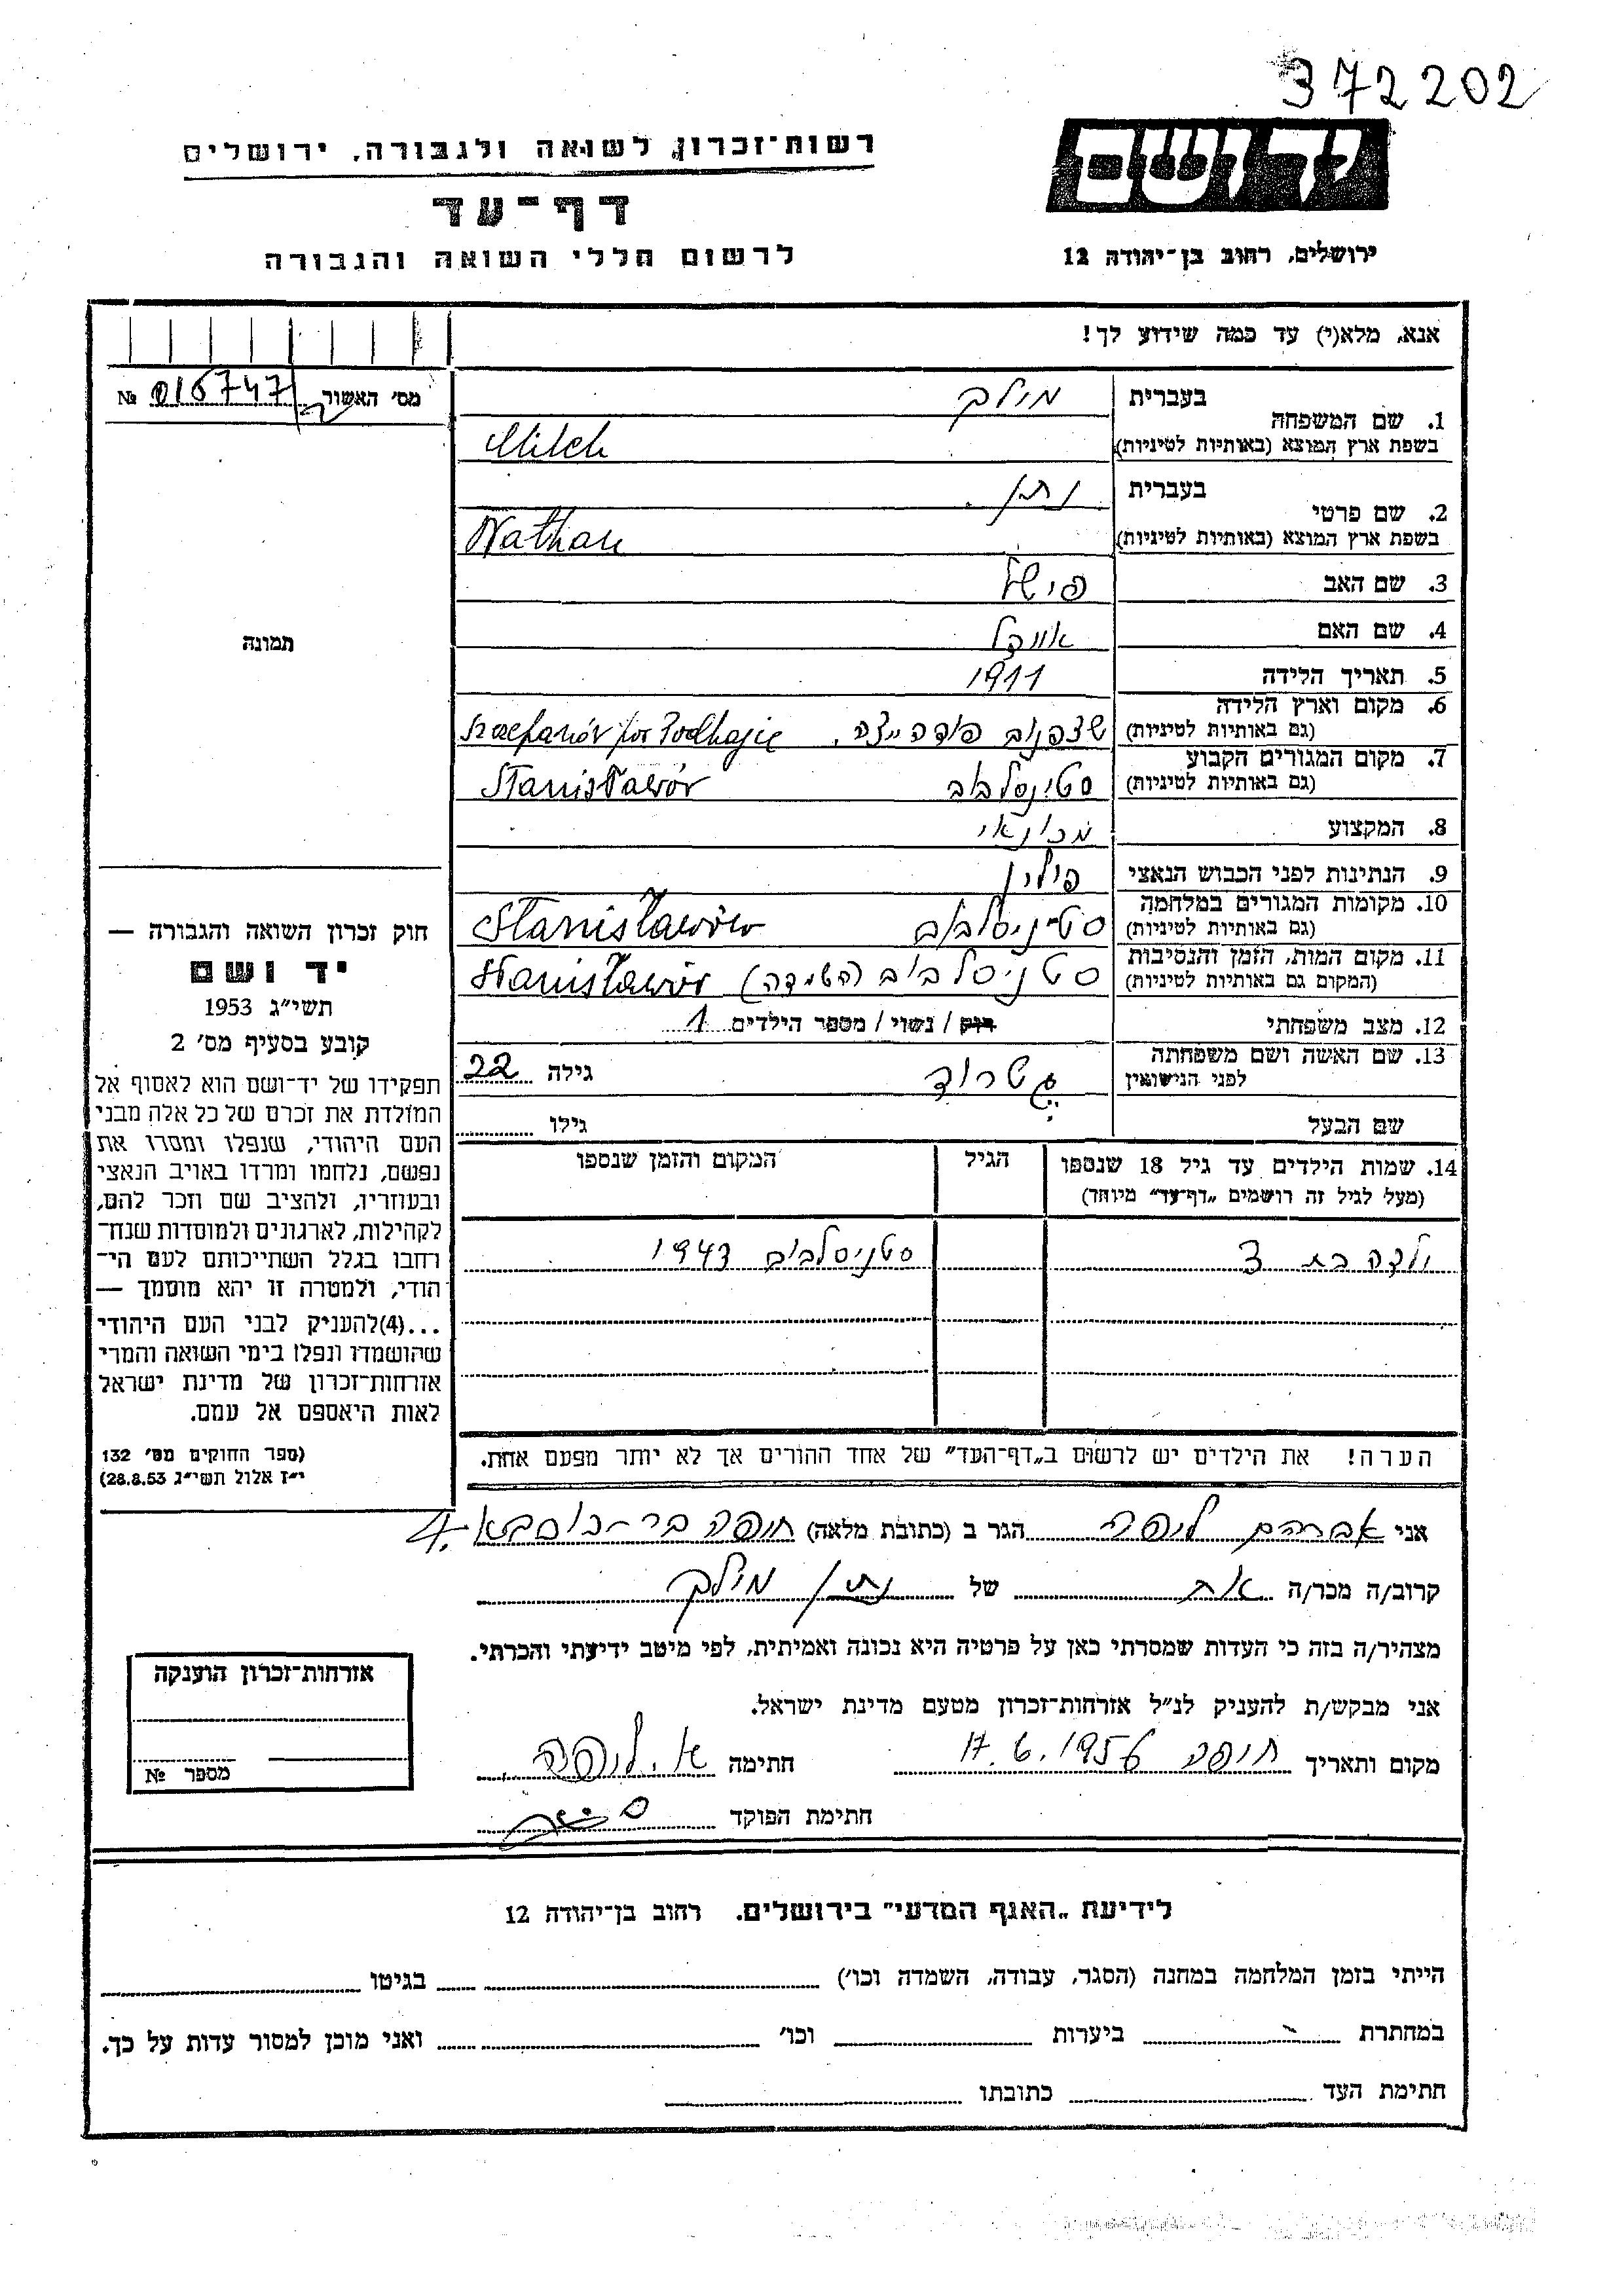 372202
יד ושם
ירושלים, רחוב בן־יהודה 12
רשות־זכרון לשואה ולגבורה, ירושלים
דף־עד
לרשום חללי השואה והגבורה
אנא, מלא(י) עד כמה שידוע לך!
מס׳ האשור 016747 №
1. שם המשפחה בעברית מילך
בשפת ארץ המוצא (באותיות לטיניות) Milch
2. שם פרטי בעברית נתן
בשפת ארץ המוצא (באותיות לטיניות) Nathan
3. שם האב פישל
4. שם האם
5. תאריך הלידה 1911
6. מקום וארץ הלידה
(גם באותיות לטיניות) שצפנוב פודהייצה. Szczepanów por Podhajce
7. מקום המגורים הקבוע
(גם באותיות לטיניות) סטניסלבוב Stanisławów
8. המקצוע מכונאי
9. הנתינות לפני הכבוש הנאצי פולין
10. מקומות המגורים במלחמה
(גם באותיות לטיניות) סטניסלבוב Stanisławów
11. מקום המות, הזמן והנסיבות
(המקום גם באותיות לטיניות) סטניסלבוב (השמדה) Stanisławów
12. מצב משפחתי רוק / נשוי / מספר הילדים 1
13. שם האשה ושם משפחתה
לפני הנישואין גילה 22
שם הבעל גילו
14. שמות הילדים עד גיל 18 שנספו הגיל המקום והזמן שנספו
(מעל לגיל זה רושמים „דף־עד״ מיוחד)
ילדה בת 3 סטניסלבוב 1943
הערה! את הילדים יש לרשום ב„דף־העד״ של אחד ההורים אך לא יותר מפעם אחת.
תמונה
חוק זכרון השואה והגבורה —
יד ושם
תשי״ג 1953
קובע בסעיף מס׳ 2
תפקידו של יד־ושם הוא לאסוף אל
המולדת את זכרם של כל אלה מבני
העם היהודי, שנפלו ומסרו את
נפשם, נלחמו ומרדו באויב הנאצי
ובעוזריו, ולהציב שם וזכר להם,
לקהילות, לארגונים ולמוסדות שנח־
רחבו בגלל השתייכותם לעם הי־
הודי, ולמטרה זו יהא מוסמך —
...(4)להעניק לבני העם היהודי
שהושמדו ונפלו בימי השואה והמרי
אזרחות־זכרון של מדינת ישראל
לאות היאספם אל עמם.
(ספר החוקים מס׳ 132
י״ז אלול תשי״ג 28.8.53)
אני אברהם ליפה הגר ב (כתובת מלאה) חיפה בר-כוכבא 4.
קרוב/ה מכר/ה של נתן מילך
מצהיר/ה בזה כי העדות שמסרתי כאן על פרטיה היא נכונה ואמיתית, לפי מיטב ידיעתי והכרתי.
אני מבקש/ת להעניק לנ״ל אזרחות־זכרון מטעם מדינת ישראל.
מקום ותאריך חיפה 17.6.1956 חתימה א. ליפה
חתימת הפוקד
אזרחות־זכרון הוענקה
מספר №
לידיעת „האגף המדעי״ בירושלים. רחוב בן־יהודה 12
הייתי בזמן המלחמה במחנה (הסגר, עבודה, השמדה וכו׳) בגיטו
במחתרת ביערות וכו׳ ואני מוכן למסור עדות על כך.
חתימת העד כתובתו